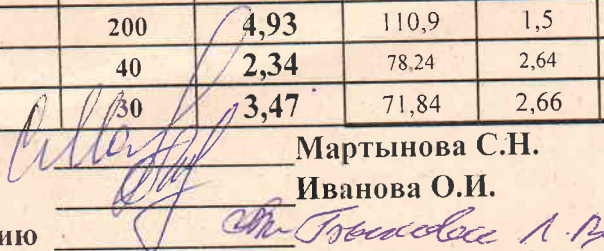 200 4,93 110,9 1,5
40 2,34 78,24 2,64
30 3,47 71,84 2,66
Мартынова С.Н.
Иванова О.И.
ию Л.В